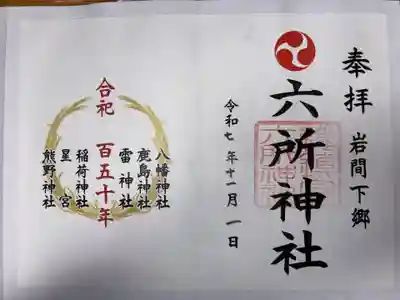 奉拝
岩間下郷
六所神社
令和七年十一月一日
合祀
百五十年
八幡神社
鹿島神社
雷神社
稲荷神社
星宮
熊野神社